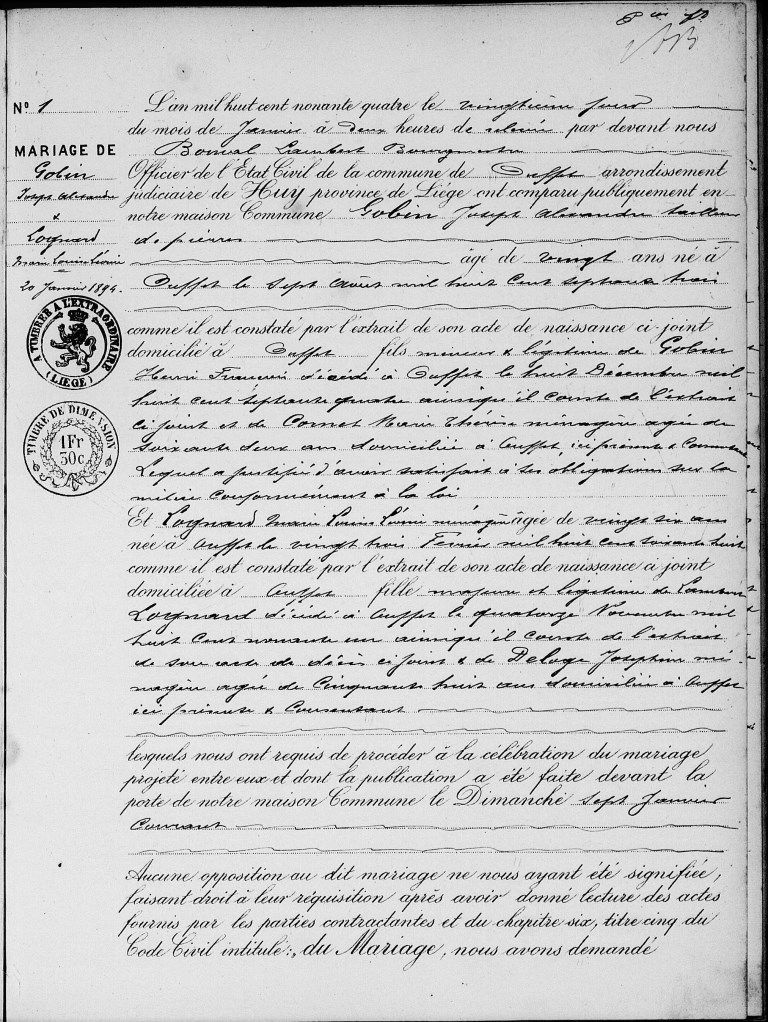 Nº 1
MARIAGE DE
Gobin
Joseph Alexandre
&
Lognard
Marie Louise Léonie
20 Janvier 1894.
A TIMBRER A L'EXTRAORDINAIRE
(LIEGE)
TIMBRE DE DIMENSION
1 Fr
30 c.
L'an mil huit cent nonante quatre le vingtième jour
du mois de Janvier à deux heures de relevée par devant nous
Bonval Lambert Bourgmestre
Officier de l'Etat Civil de la commune de Ouffet arrondissement
judiciaire de Huy province de Liége ont comparu publiquement en
notre maison Commune Gobin Joseph Alexandre tailleur
de pierres
âgé de vingt ans né à
Ouffet le sept Août mil huit cent septante trois
comme il est constaté par l'extrait de son acte de naissance ci-joint
domicilié à Ouffet fils mineur & légitime de Gobin
Henri François décédé à Ouffet le huit Décembre mil
huit cent septante quatre ainsiqu'il conste de l'extrait
ci joint et de Cornet Marie Thérèse ménagère agée de
soixante deux ans domiciliée à Ouffet, ici présente & Consentante
Lequel a justifié d'avoir satisfait à ses obligations sur la
milice conformément à la loi
Et Lognard Marie Louise Léonie ménagère âgée de vingt six ans
née à Ouffet le vingt trois Février mil huit cent soixante huit
comme il est constaté par l'extrait de son acte de naissance ci joint
domiciliée à Ouffet fille majeure et légitime de Lambert
Lognard décédé à Ouffet le quatorze Novembre mil
huit cent nonante un ainsiqu'il conste de l'extrait
de son acte de décès ci joint & de Deloge Joséphine mé-
nagère agée de Cinquante huit ans domiciliée à Ouffet
ici présente & Consentant
lesquels nous ont requis de procéder à la célébration du mariage
projeté entre eux et dont la publication a été faite devant la
porte de notre maison Commune le Dimanche sept Janvier
Courant
Aucune opposition au dit mariage ne nous ayant été signifiée,
faisant droit à leur réquisition après avoir donné lecture des actes
fournis par les parties contractantes et du chapitre six, titre cinq du
Code Civil intitulé:, du Mariage, nous avons demandé